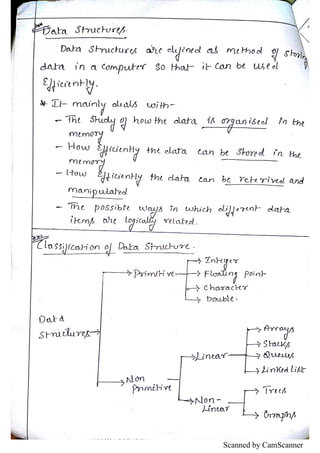 Data Structures.
Data Structures are defined as method of storing
data in a computer so that it can be used
Efficiently.
* It mainly deals with-
- The Study of how the data is organised In the
memory
- How Efficiently the data can be stored in the
memory
- How Efficiently the data can be reterived and
manipulated
- The possible ways In which different data
items are logically related.
Classification of Data Structure.
→ Integer
→ Primitive → Floating point
→ Character
→ Double.
Data
Structures
→ Arrays
→ Stacks
→ Linear → Queues
→ Linked List
→ Non
Primitive
→ Trees
→ Non-
Linear
→ Graphs
Scanned by CamScanner